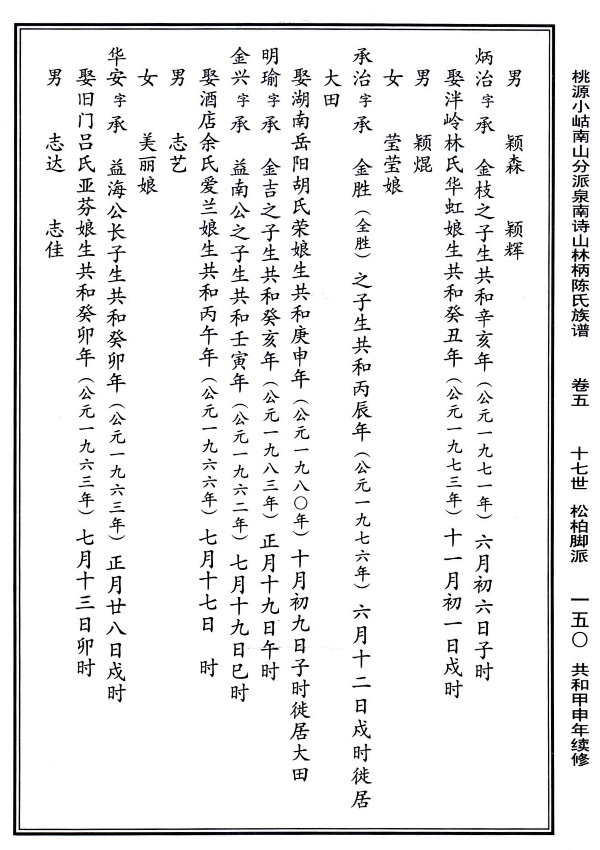 桃源小岵南山分派泉南诗山林柄陈氏族谱 卷五 十七世 松柏脚派 一五〇 共和甲申年续修
男 颖森 颖辉
炳治字承 金枝之子生共和辛亥年（公元一九七一年）六月初六日子时
娶泮岭林氏华虹娘生共和癸丑年（公元一九七三年）十一月初一日戍时
男 颖焜
女 莹莹娘
承治字承 金胜（全胜）之子生共和丙辰年（公元一九七六年）六月十二日戍时徙居
大田
娶湖南岳阳胡氏荣娘生共和庚申年（公元一九八〇年）十月初九日子时徙居大田
明瑜字承 金吉之子生共和癸亥年（公元一九八三年）正月十九日午时
金兴字承 益南公之子生共和壬寅年（公元一九六二年）七月十九日巳时
娶酒店余氏爱兰娘生共和丙午年（公元一九六六年）七月十七日 时
男 志艺
女 美丽娘
华安字承 益海公长子生共和癸卯年（公元一九六三年）正月廿八日戍时
娶旧门吕氏亚芬娘生共和癸卯年（公元一九六三年）七月十三日卯时
男 志达 志佳